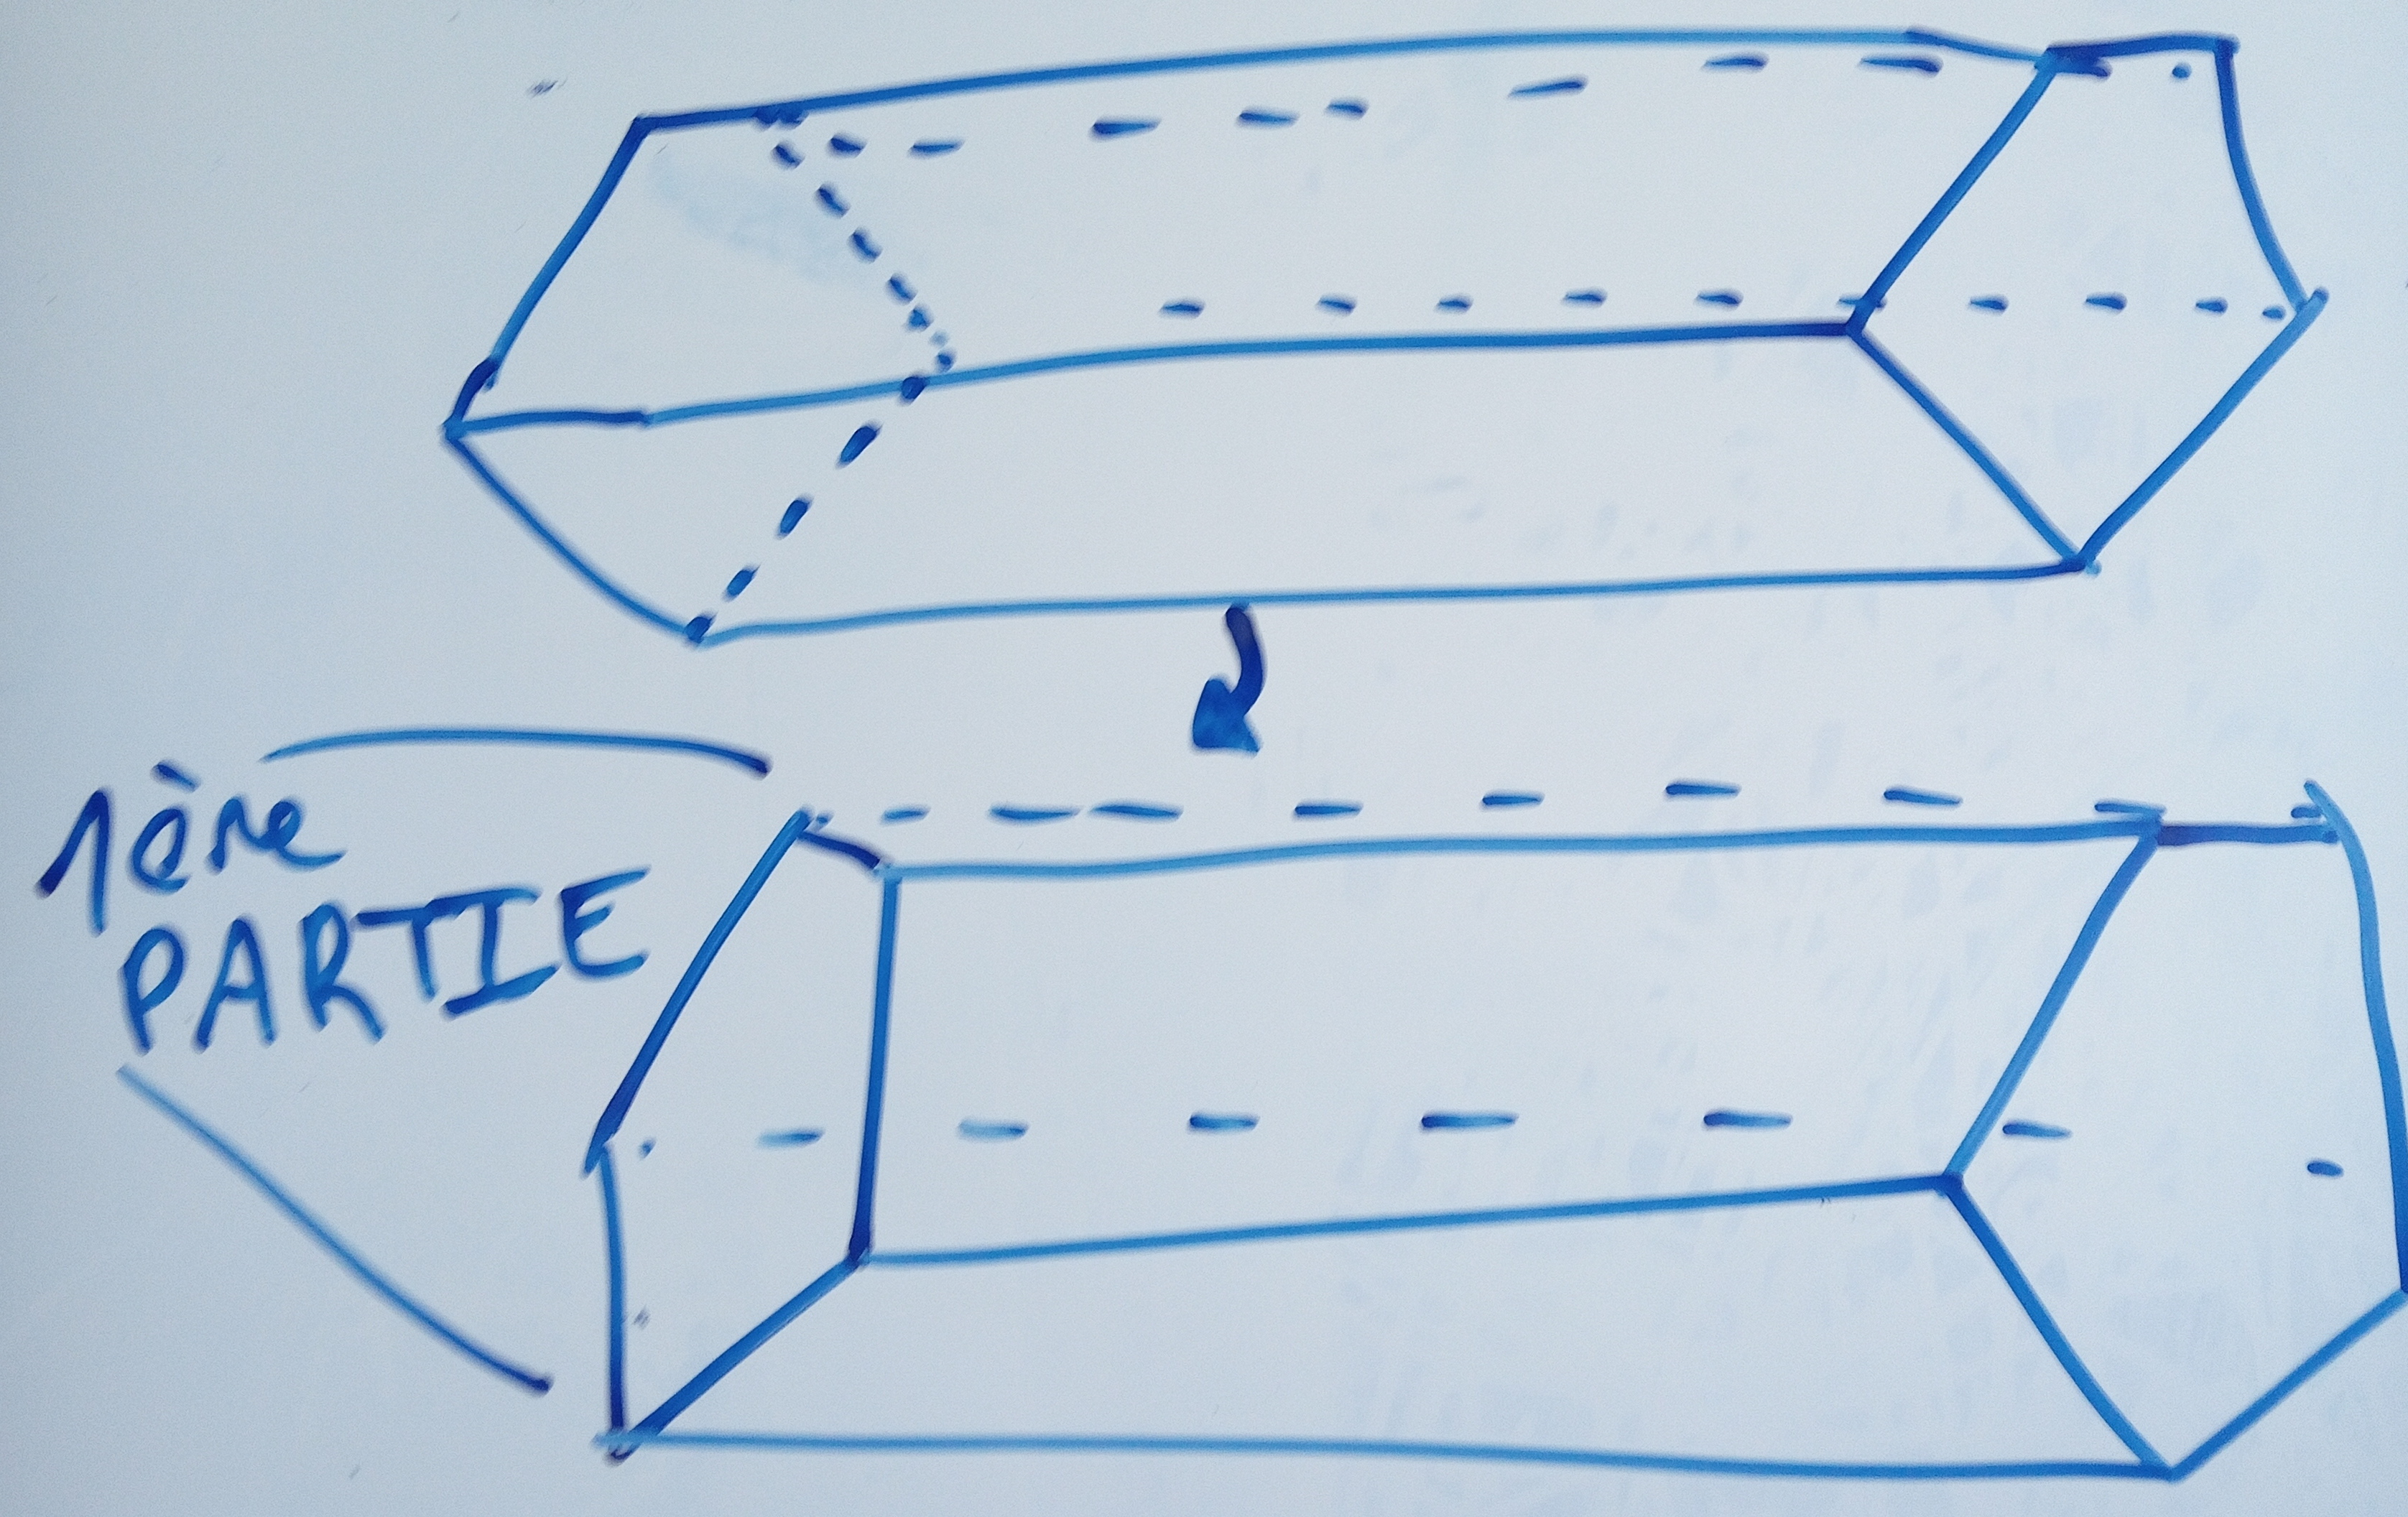 1ère
PARTIE